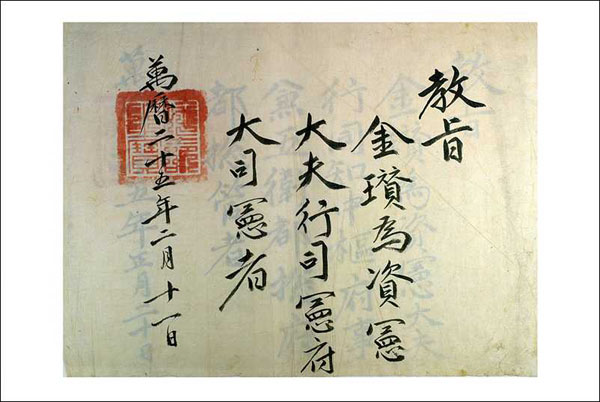 教旨
金瓚為資憲
大夫行司憲府
大司憲者
萬曆二十五年二月十一日